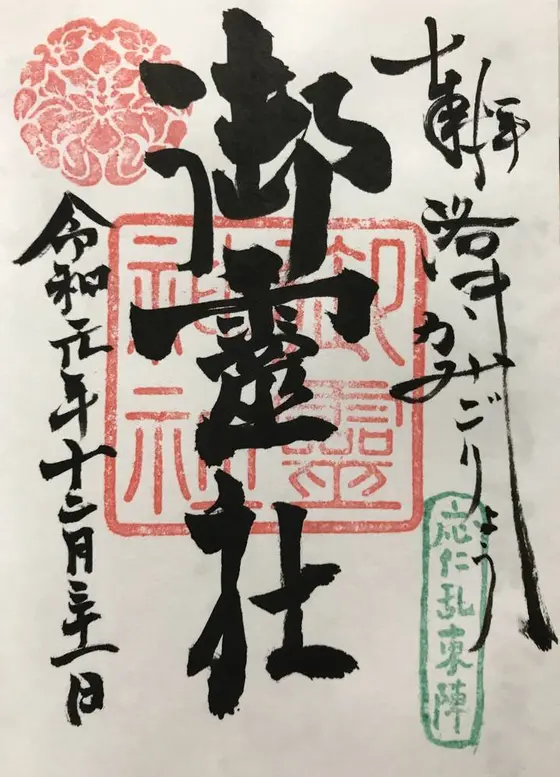 奉拝
洛中、かみごりょう
応仁乱東陣
御靈社
御靈
神社
令和元年十二月三十一日